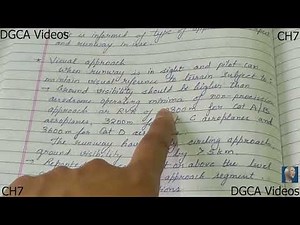 DGCA Videos
CH7
is informed of type of app
and runway in use.
* Visual approach
When runway is in sight and pilot can
maintain visual reference to terrain subject to:-
→ Ground visibility should be higher than
aerodrome operating minima of non-precision
approach or RVR of 2800m for Cat A/B
aeroplanes, 3200m C aeroplanes and
3600m for Cat D
The runway ha circling approach
ground visibility by > 5km
Reports on above the level
approach segment
tions
CH7
DGCA Videos